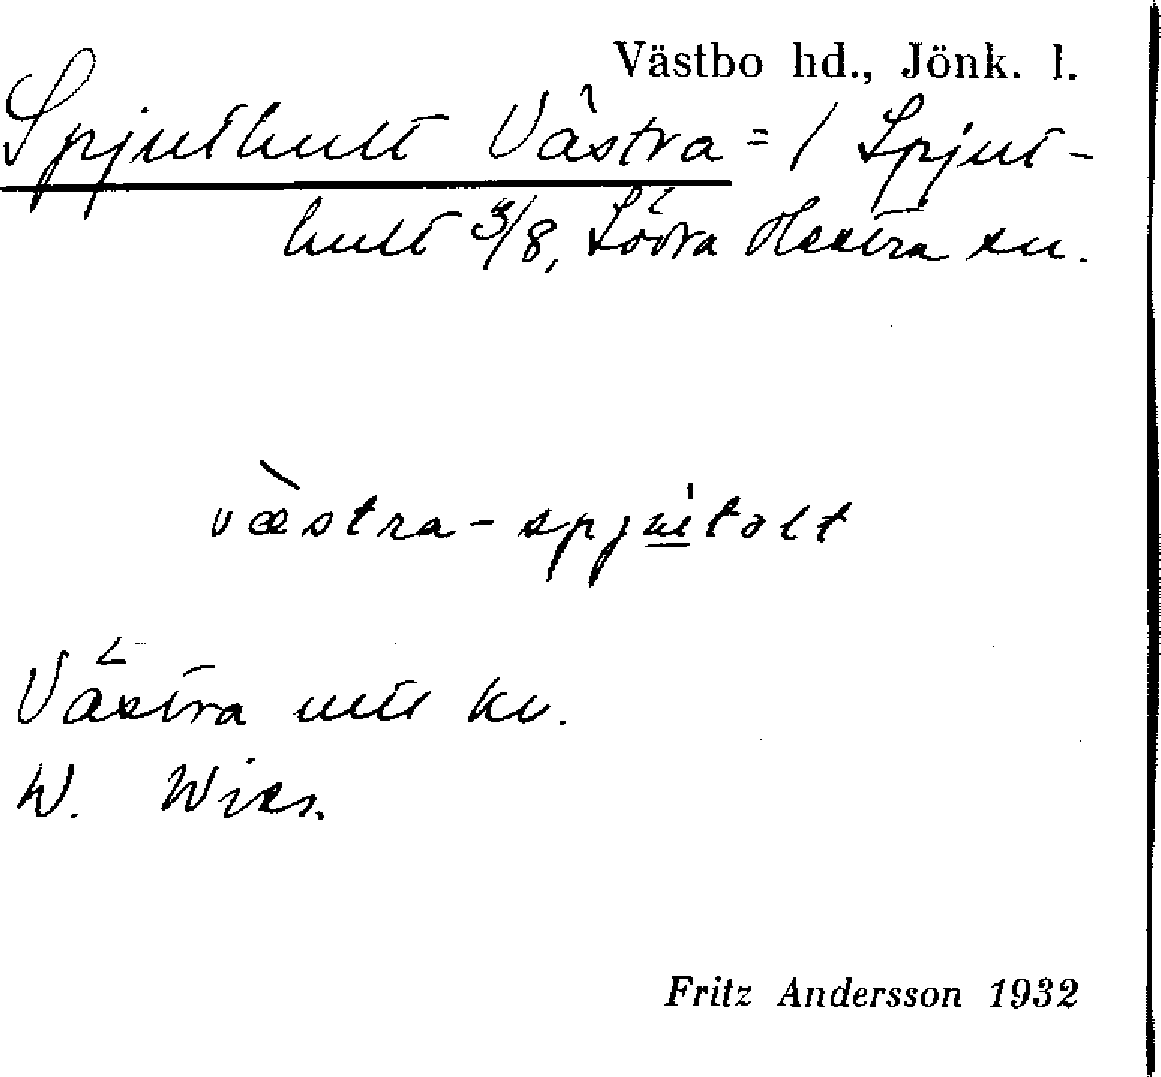 Västbo hd., Jönk. l.
Spjuthult Västra = / Spjut-
hult 3/8, Södra Hestra sn.
væstra-spjutolt
Västra utt kv.
W. Wies.
Fritz Andersson 1932